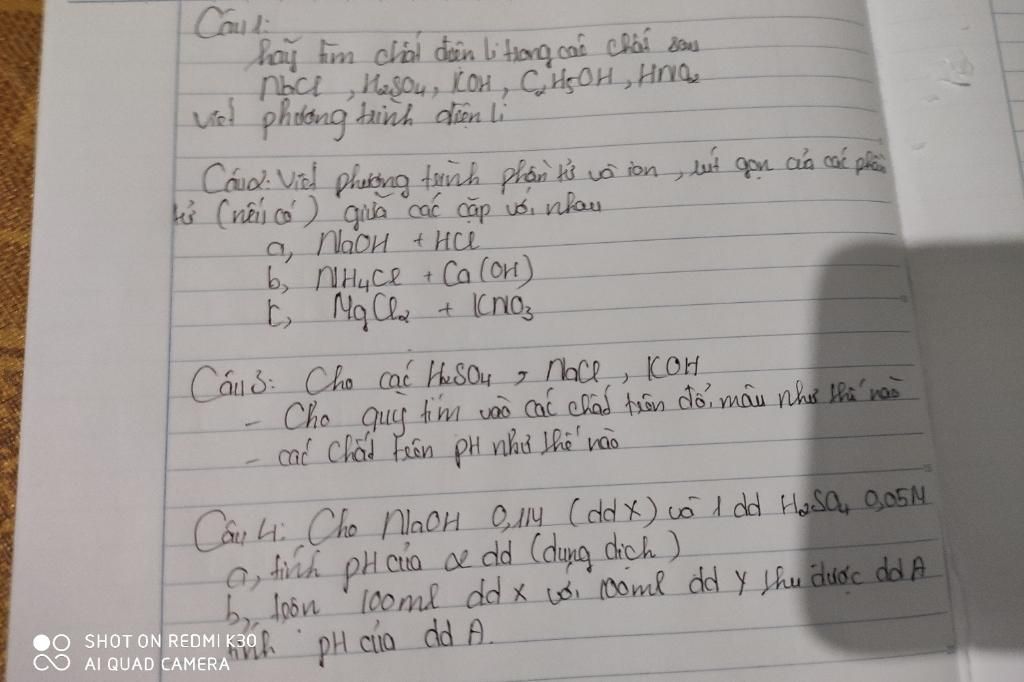 Câu 1:
hãy tìm chất điện li trong các chất sau
NaCl, H₂SO₄, KOH, C₂H₅OH, HNO₂
viết phương trình điện li
Câu 2: Viết phương trình phân tử và ion, rút gọn của các phân
tử (nếu có) giữa các cặp với nhau
a, NaOH + HCl
b, NH₄Cl + Ca(OH)
c, MgCl₂ + KNO₃
Câu 3: Cho các H₂SO₄, NaCl, KOH
- Cho quỳ tím vào các chất trên đổi màu như thế nào
- các chất trên pH như thế nào
Câu 4: Cho NaOH 0,1M (dd X) và 1 dd H₂SO₄ 0,05M
a, tính pH của 2 dd (dụng dịch)
b, trộn 100ml dd X với 100ml dd Y thu được dd A
tính pH của dd A.
SHOT ON REDMI K30
AI QUAD CAMERA